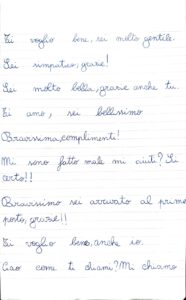 Ti voglio bene, sei molto gentile.
Sei simpatico, grazie!
Sei molto bella, grazie anche tu.
Ti amo, sei bellissimo
Bravissima, complimenti!
Mi sono fatto male mi aiuti? Si
certo!!
Bravissimo sei arrivato al primo
posto, grazie!!
Ti voglio bene, anche io.
Ciao come ti chiami? Mi chiamo